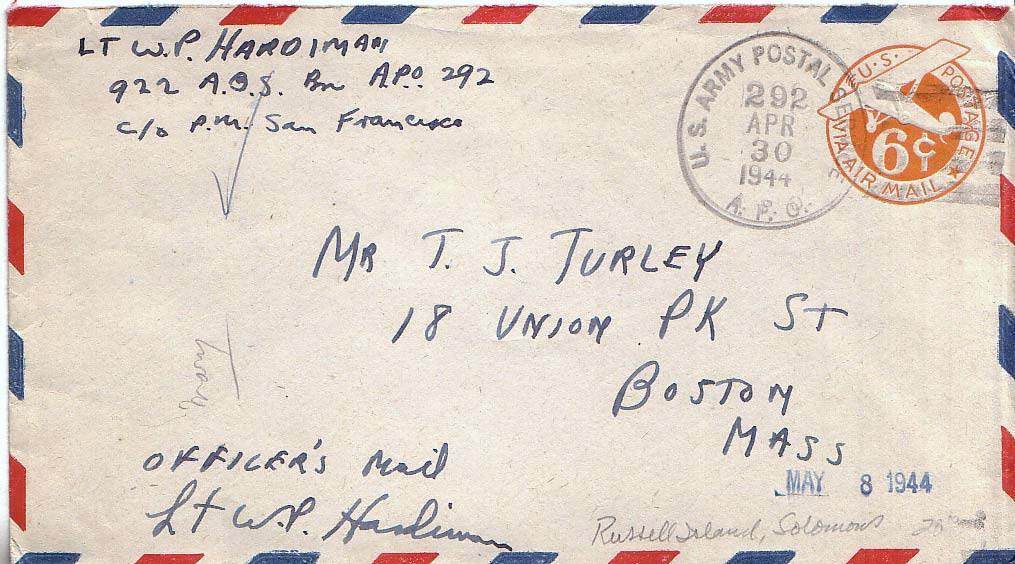 LT W.P. HARDIMAN
922 A.B.S. Bn A.P.O. 292
c/o P.M. San Francisco
U.S. ARMY POSTAL SERVICE
292
APR
30
1944
A. P. O.
U.S. POSTAGE
6¢
VIA AIR MAIL
MR T. J. TURLEY
18 UNION PK ST
BOSTON
MASS
OFFICER'S Mail
Lt W.P. Hardiman
MAY 8 1944
Russell Island, Solomons